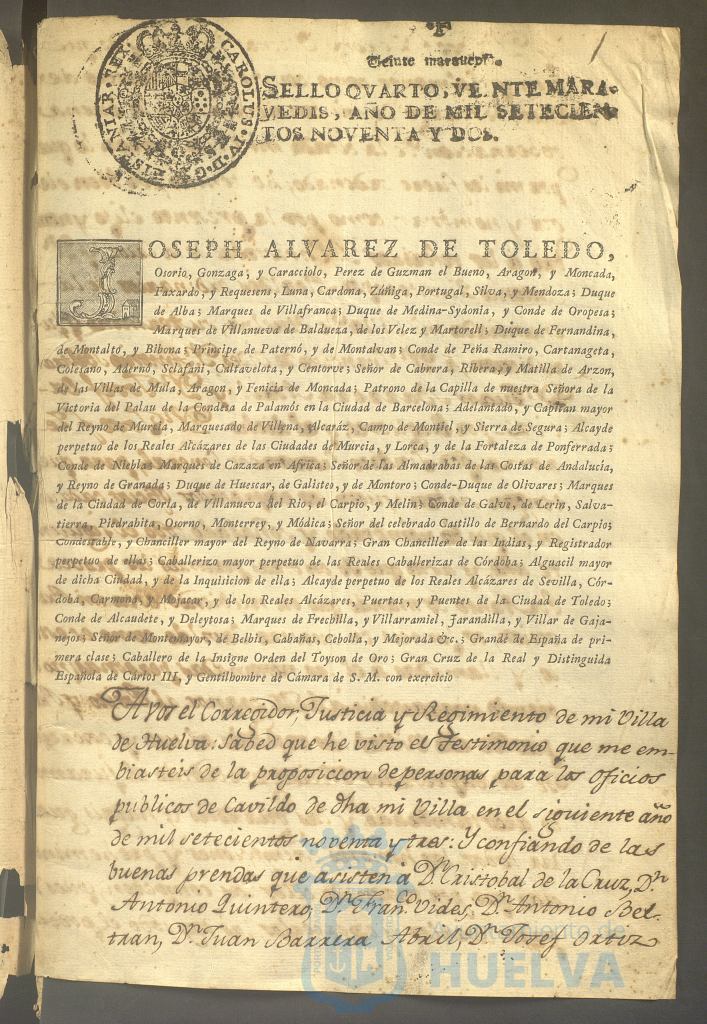 CAROLUS IV D. G. HISPANIAR. REX
Veinte maravedis.
SELLO QVARTO, VEINTE MARA-
VEDIS, AÑO DE MIL SETECIEN-
TOS NOVENTA Y DOS.
JOSEPH ALVAREZ DE TOLEDO,
Osorio, Gonzaga, y Caracciolo, Perez de Guzman el Bueno, Aragon, y Moncada,
Faxardo, y Requesens, Luna, Cardona, Zúñiga, Portugal, Silva, y Mendoza; Duque
de Alba; Marques de Villafranca; Duque de Medina-Sydonia, y Conde de Oropesa;
Marques de Villanueva de Baldueza, de los Velez y Martorell; Duque de Fernandina,
de Montalto, y Bibona; Principe de Paternó, y de Montalvan; Conde de Peña Ramiro, Cartanageta,
Colesano, Adernó, Sclafani, Caltavelota, y Centorve; Señor de Cabrera, Ribera, y Matilla de Arzon,
de las Villas de Mula, Aragon, y Fenicia de Moncada; Patrono de la Capilla de nuestra Señora de la
Victoria del Palau de la Condesa de Palamós en la Ciudad de Barcelona; Adelantado, y Capitan mayor
del Reyno de Murcia, Marquesado de Villena, Alcaráz, Campo de Montiel, y Sierra de Segura; Alcayde
perpetuo de los Reales Alcázares de las Ciudades de Murcia, y Lorca, y de la Fortaleza de Ponferrada;
Conde de Niebla; Marques de Cazaza en Africa; Señor de las Almadrabas de las Costas de Andalucia,
y Reyno de Granada; Duque de Huescar, de Galisteo, y de Montoro; Conde-Duque de Olivares; Marques
de la Ciudad de Coria, de Villanueva del Rio, el Carpio, y Melin; Conde de Galve, de Lerin, Salva-
tierra, Piedrabita, Osorno, Monterrey, y Módica; Señor del celebrado Castillo de Bernardo del Carpio;
Condestable, y Chanciller mayor del Reyno de Navarra; Gran Chanciller de las Indias, y Registrador
perpetuo de ellas; Caballerizo mayor perpetuo de las Reales Caballerizas de Córdoba; Alguacil mayor
de dicha Ciudad, y de la Inquisicion de ella; Alcayde perpetuo de los Reales Alcázares de Sevilla, Cór-
doba, Carmona, y Mojacar, y de los Reales Alcázares, Puertas, y Puentes de la Ciudad de Toledo;
Conde de Alcaudete, y Deleytosa; Marques de Frechilla, y Villarramiel, Jarandilla, y Villar de Gaja-
nejos; Señor de Montemayor, de Belbis, Cabañas, Cebolla, y Mejorada &c.; Grande de España de pri-
mera clase; Caballero de la Insigne Orden del Toyson de Oro; Gran Cruz de la Real y Distinguida
Española de Cárlos III, y Gentilhombre de Cámara de S. M. con exercicio
A vos el Corregidor, Justicia y Regimiento de mi Villa
de Huelva: sabed que he visto el Testimonio que me em-
biasteis de la proposicion de personas para los oficios
publicos de Cavildo de dha mi Villa en el siguiente año
de mil setecientos noventa y tres: Y confiando de las
buenas prendas que asisten a Dn Cristobal de la Cruz, Dn
Antonio Quintero, Dn Franco Vides, Dn Antonio Bel-
tran, Dn Juan Barrera Abril, Dn Josef Ortiz
Ayuntamiento de
HUELVA